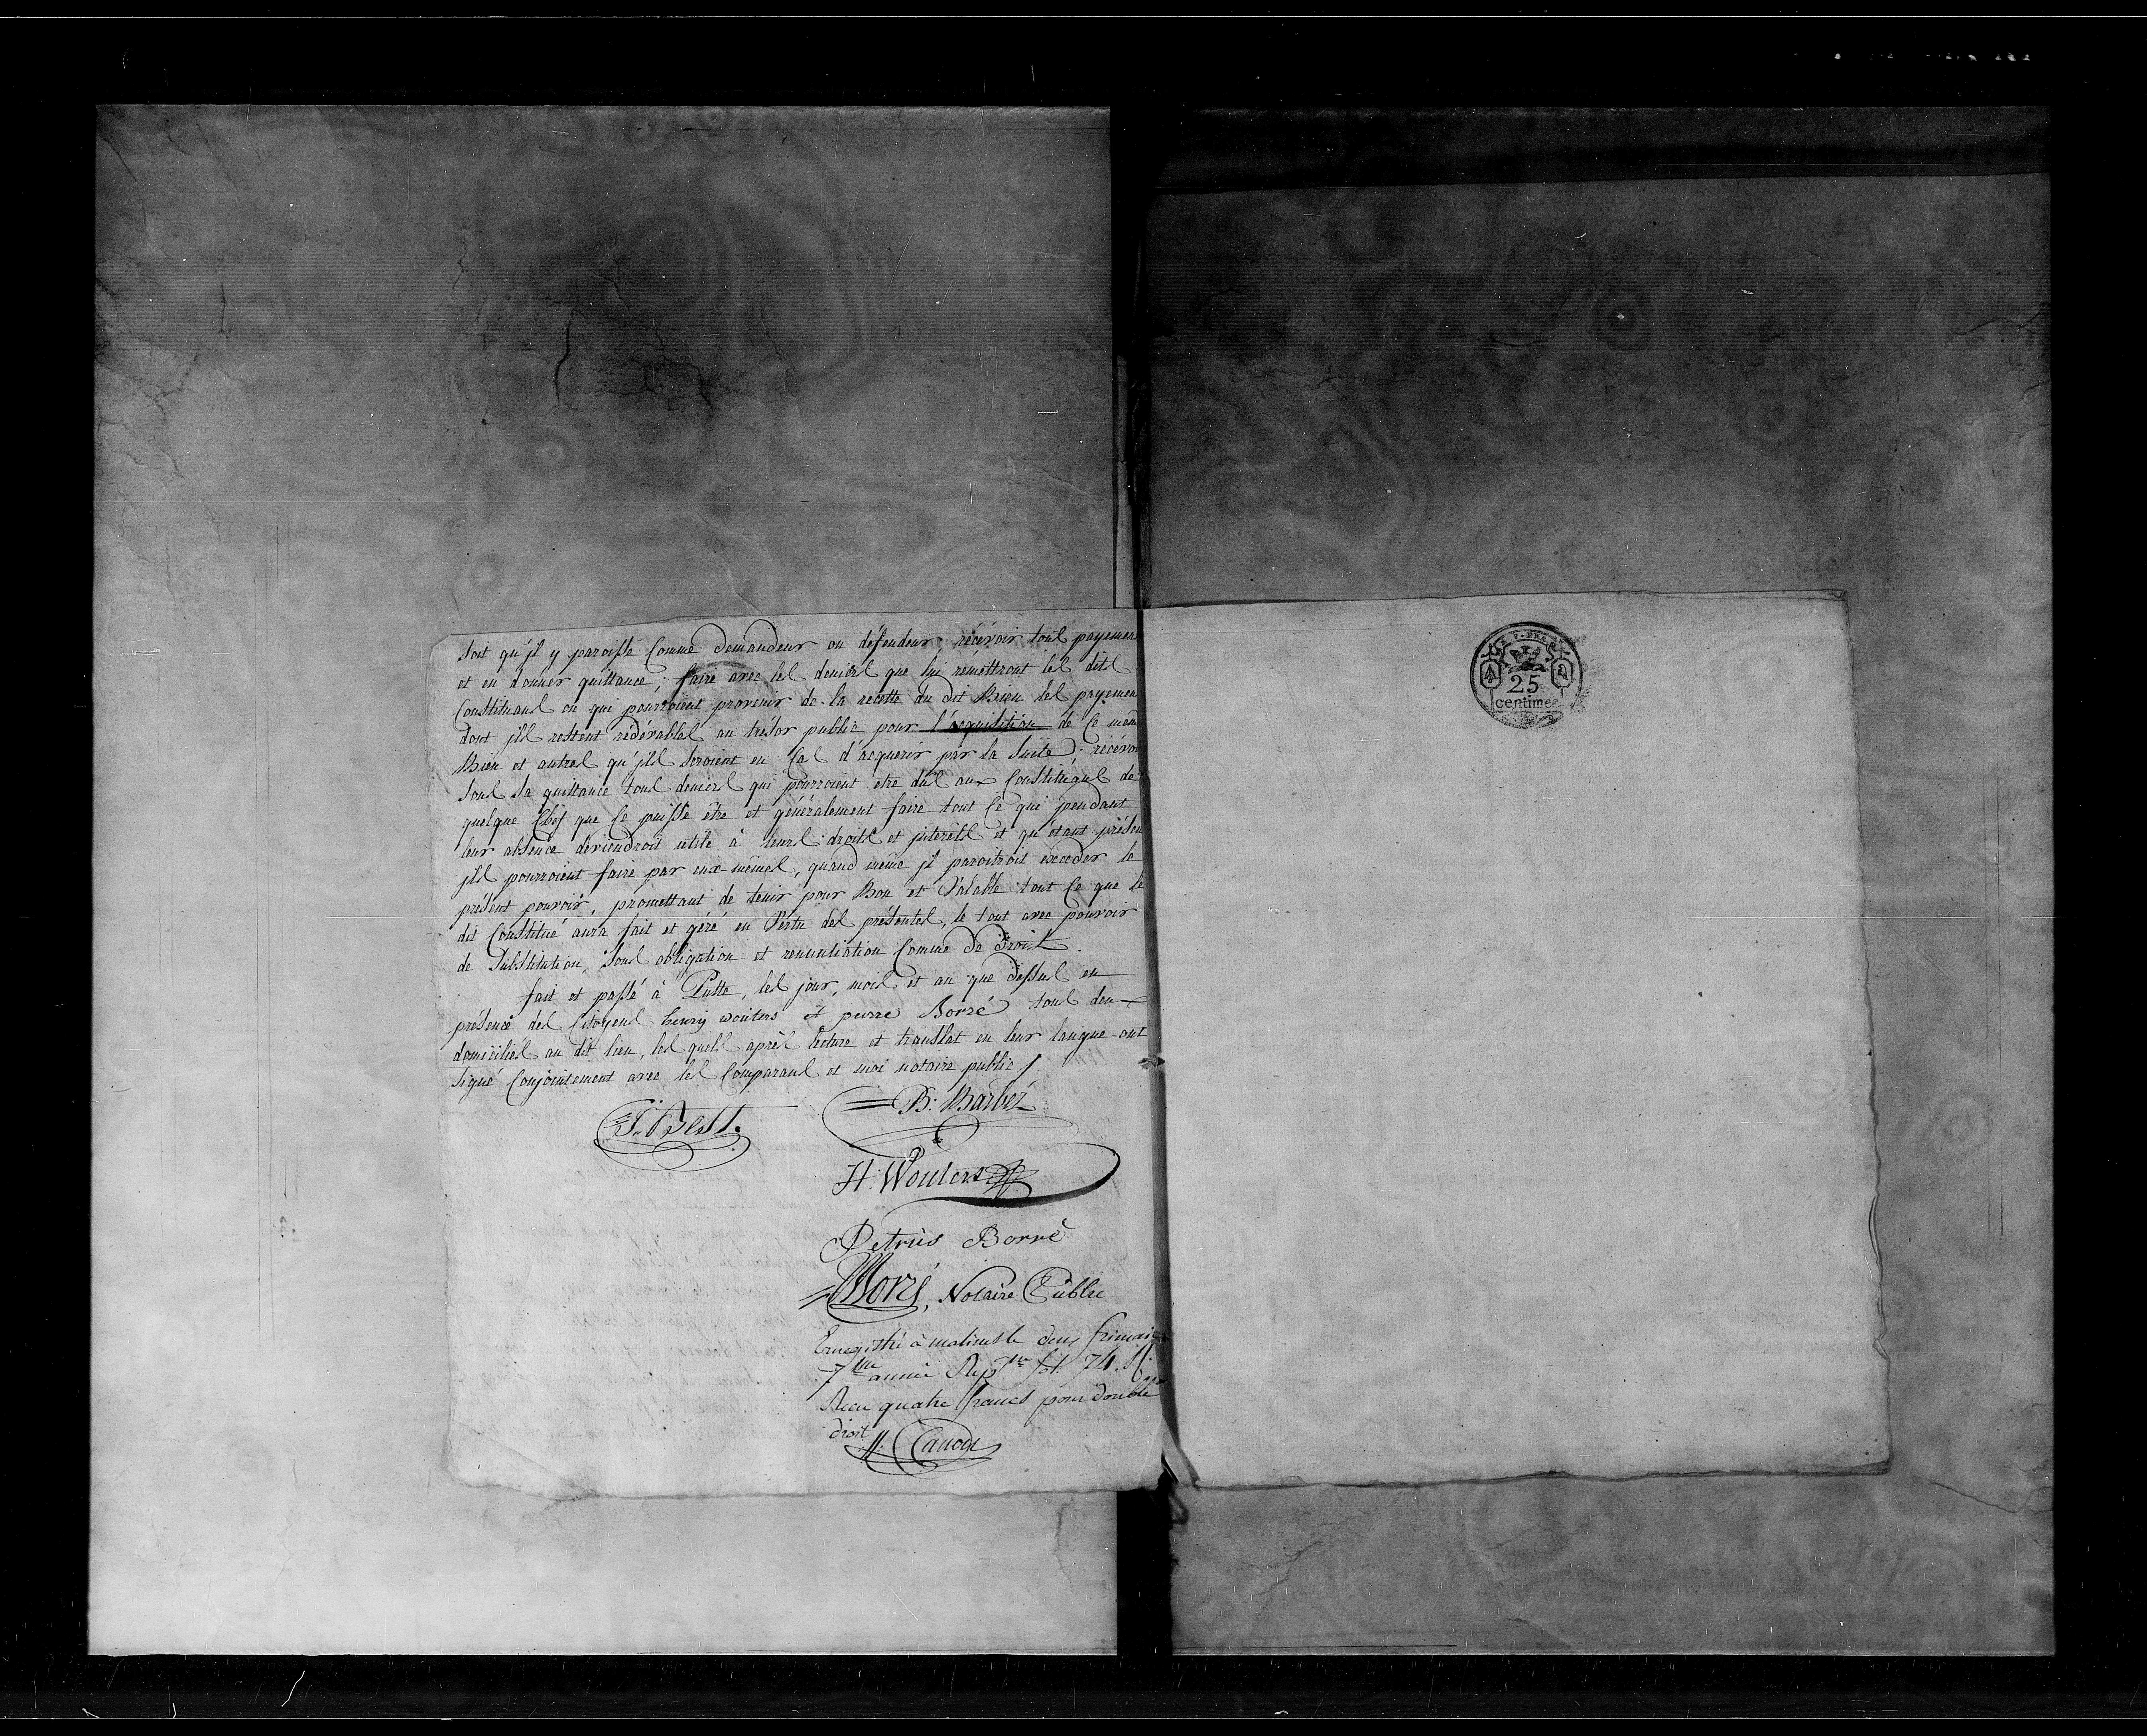 soit qu'il y paroisse Comme demandeur ou défendeur; récévoir tous payemen
et en donner quittance; faire avec les deniers que lui remettront les dits
Constituans ou qui pourroient provenir de la recette du dit Bien les payemen
dont jls restent rédévables au trésor public pour l'acquisition de Ce mem
Bien et autres qu'jls seroient en Cas d'acquerir par la Suite; récévoi
sous sa quittance tous deniers qui pourroient etre dûs aux Constituans de
quelque Chef que Ce puisse être et généralement faire tout Ce qui pendant
leur absence deviendroit utile à leurs droits et jnterêts et qu'étant présen
jls pourroient faire par eux-mêmes, quand meme jl paroitroit exceder le
présent pouvoir, promettant de tenir pour Bon et Valable tout Ce que le
dit Constitué aura fait et géré en Vertu des présentes, le tout avec pouvoir
de Substitution, sous obligation et renuntiation Comme de Droit.
fait et passé à Putte, les jour, mois et an que dessus en
présence des Citoyens henry wouters et pierre Borré tous deux
domiciliés au dit lieu, les quels après lecture et translat en leur langue ont
signé Conjointement avec les Comparans et moi notaire public /.
B: Barbé
H. Wouters
Petrus Borré
Notaire Public
Enregistré à malines le deux frimair
7me année Rep fol. 74. R.
Recu quatre francs pour double
droit
25
centimes